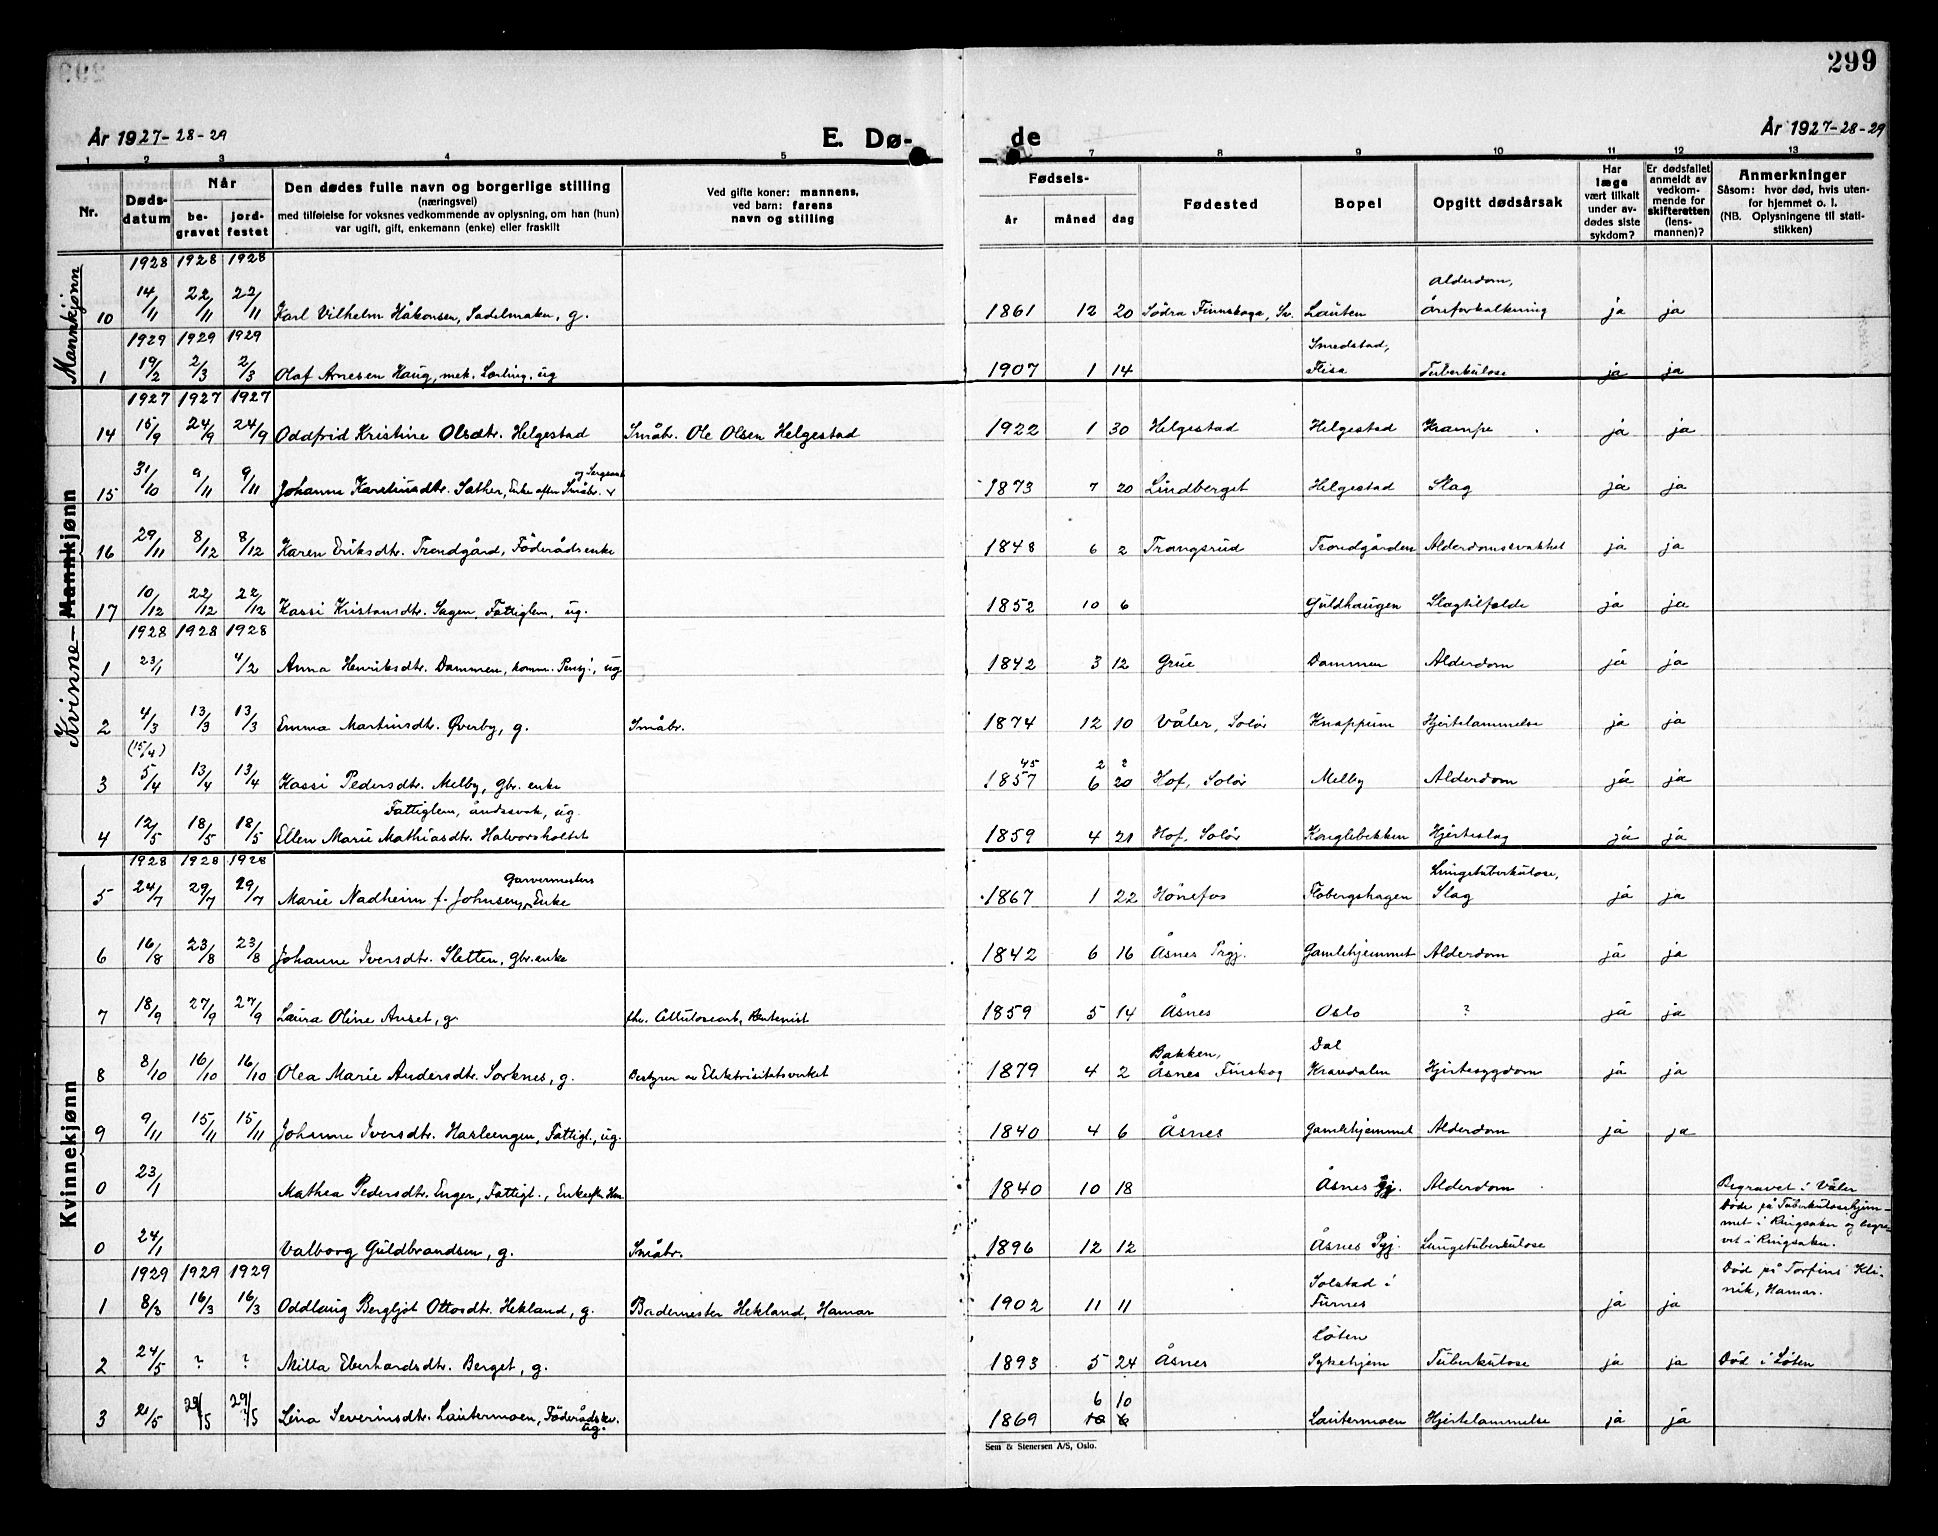 299
År 1927-28-29 E. Dø- de År 1927-28-29
1 2 3 4 5 7 8 9 10 11 12 13
Nr. Døds-datum Når be-gravet jord-festet Den dødes fulle navn og borgerlige stilling (næringsvei) med tilføielse for voksnes vedkommende av oplysning, om han (hun) var ugift, gift, enkemann (enke) eller fraskilt Ved gifte koner: mannens, ved barn: farens navn og stilling Fødsels- år måned dag Fødested Bopel Opgitt dødsårsak Har læge vært tilkalt under av-dødes siste sykdom? Er dødsfallet anmeldt av vedkom-mende for skifteretten (lens-mannen)? Anmerkninger Såsom: hvor død, hvis uten-for hjemmet o. l. (NB. Oplysningene til stati-stikken)
Mannkjønn
1928 1928 1928
10 14/11 22/11 22/11 Karl Vilhelm Håkonsen, Sadelmaker, g. 1861 12 20 Södra Finnskoga, Sv. Lauten Alderdom, Åreforkalkning ja ja
1929 1929 1929
1 19/2 2/3 2/3 Olaf Arnesen Haug, mek. Lærling, ug 1907 1 14 Smedstad, Flisa Tuberkulose ja ja
Kvinne- Mannkjønn
1927 1927 1927
14 15/9 24/9 24/9 Oddfrid Kristine Olsdtr. Helgestad Småbr. Ole Olsen Helgestad 1922 1 30 Helgestad Helgestad Krampe ja ja
15 31/10 9/11 9/11 Johanne Karstinsdtr. Sæther, Enke efter Småbr. og Sergeant 1873 7 20 Lindberget Helgestad Slag ja ja
16 29/11 8/12 8/12 Karen Eriksdtr. Trondgård, Föderådsenke 1848 6 2 Trangsrud Trondgården Alderdomssvakhet ja ja
17 10/12 22/12 22/12 Kassi Kristansdtr. Sagen, Fattiglem, ug. 1852 10 6 Guldhaugen Slagtilfælde ja ja
1928 1928 1928
1 23/1 4/2 Anna Henriksdtr. Dammen, komm. Pensj., ug 1842 3 12 Grue Dammen Alderdom ja ja
2 4/3 13/3 13/3 Emma Martinsdtr. Øverby, g. Småbr. 1874 12 10 Våler, Solör Knappum Hjertelammelse ja ja
(15/4) 45 2 2
3 5/4 13/4 13/4 Kassi Pedersdtr. Melby, gbr. enke 1857 6 20 Hof, Solör Melby Alderdom ja ja
Fattiglem, åndssvak, ug.
4 12/5 18/5 18/5 Ellen Marie Mathiasdtr. Halvorsholtet 1859 4 21 Hof, Solör Konglebekken Hjerteslag ja ja
Kvinnekjønn
1928 1928 1928
5 24/7 29/7 29/7 Marie Nadheim f. Johnsen, Garvermesters Enke 1867 1 22 Hönefos Flobergshagen Lungetuberkulose, Slag ja ja
6 16/8 23/8 23/8 Johanne Iversdtr. Sletten, gbr. enke 1842 6 16 Åsnes Prgj. Gamlehjemmet Alderdom ja ja
7 18/9 27/9 27/9 Laura Oline Anset, g. fhv. Cellulosearb, Rentenist 1859 5 14 Åsnes Oslo ? ja ja
8 8/10 16/10 16/10 Olea Marie Andersdtr. Sorknes, g. Bestyrer av Elektrisitetsverket 1879 4 2 Bakken, Åsnes Finskog Dal Kravdalen Hjertesygdom ja ja
9 9/11 15/11 15/11 Johanne Iversdtr. Hasleengen, Fattigl., ug. 1840 4 6 Åsnes Gamlehjemmet Alderdom ja ja
0 23/1 Mathea Pedersdtr. Enger, Fattigl., Enke 1840 10 18 Åsnes Pgj. Alderdom Begravet i Våler
0 24/1 Valborg Guldbrandsen, g. Småbr. 1896 12 12 Åsnes Pgj. Lungetuberkulose Døde på Tuberkulosehjem-met i Ringsaker og begra-vet i Ringsaker.
1929 1929 1929
1 8/3 16/3 16/3 Oddlaug Bergljot Ottosdtr. Hekland, g. Bademester Hekland, Hamar 1902 11 11 Solstad i Furnes ja ja Död på Torfins Kli-nik, Hamar.
2 24/5 ? ? Milla Eberhardsdtr. Berget, g. 1893 5 24 Åsnes Löten Sykehjem Tuberkulose ja ja Död i Löten
6 10
3 21/5 29/5 29/5 Lina Severinsdtr. Lautermoen, Föderådskv. ug. 1869 10 6 Lautermoen Hjertelammelse ja ja
Sem & Stenersen A/S, Oslo.